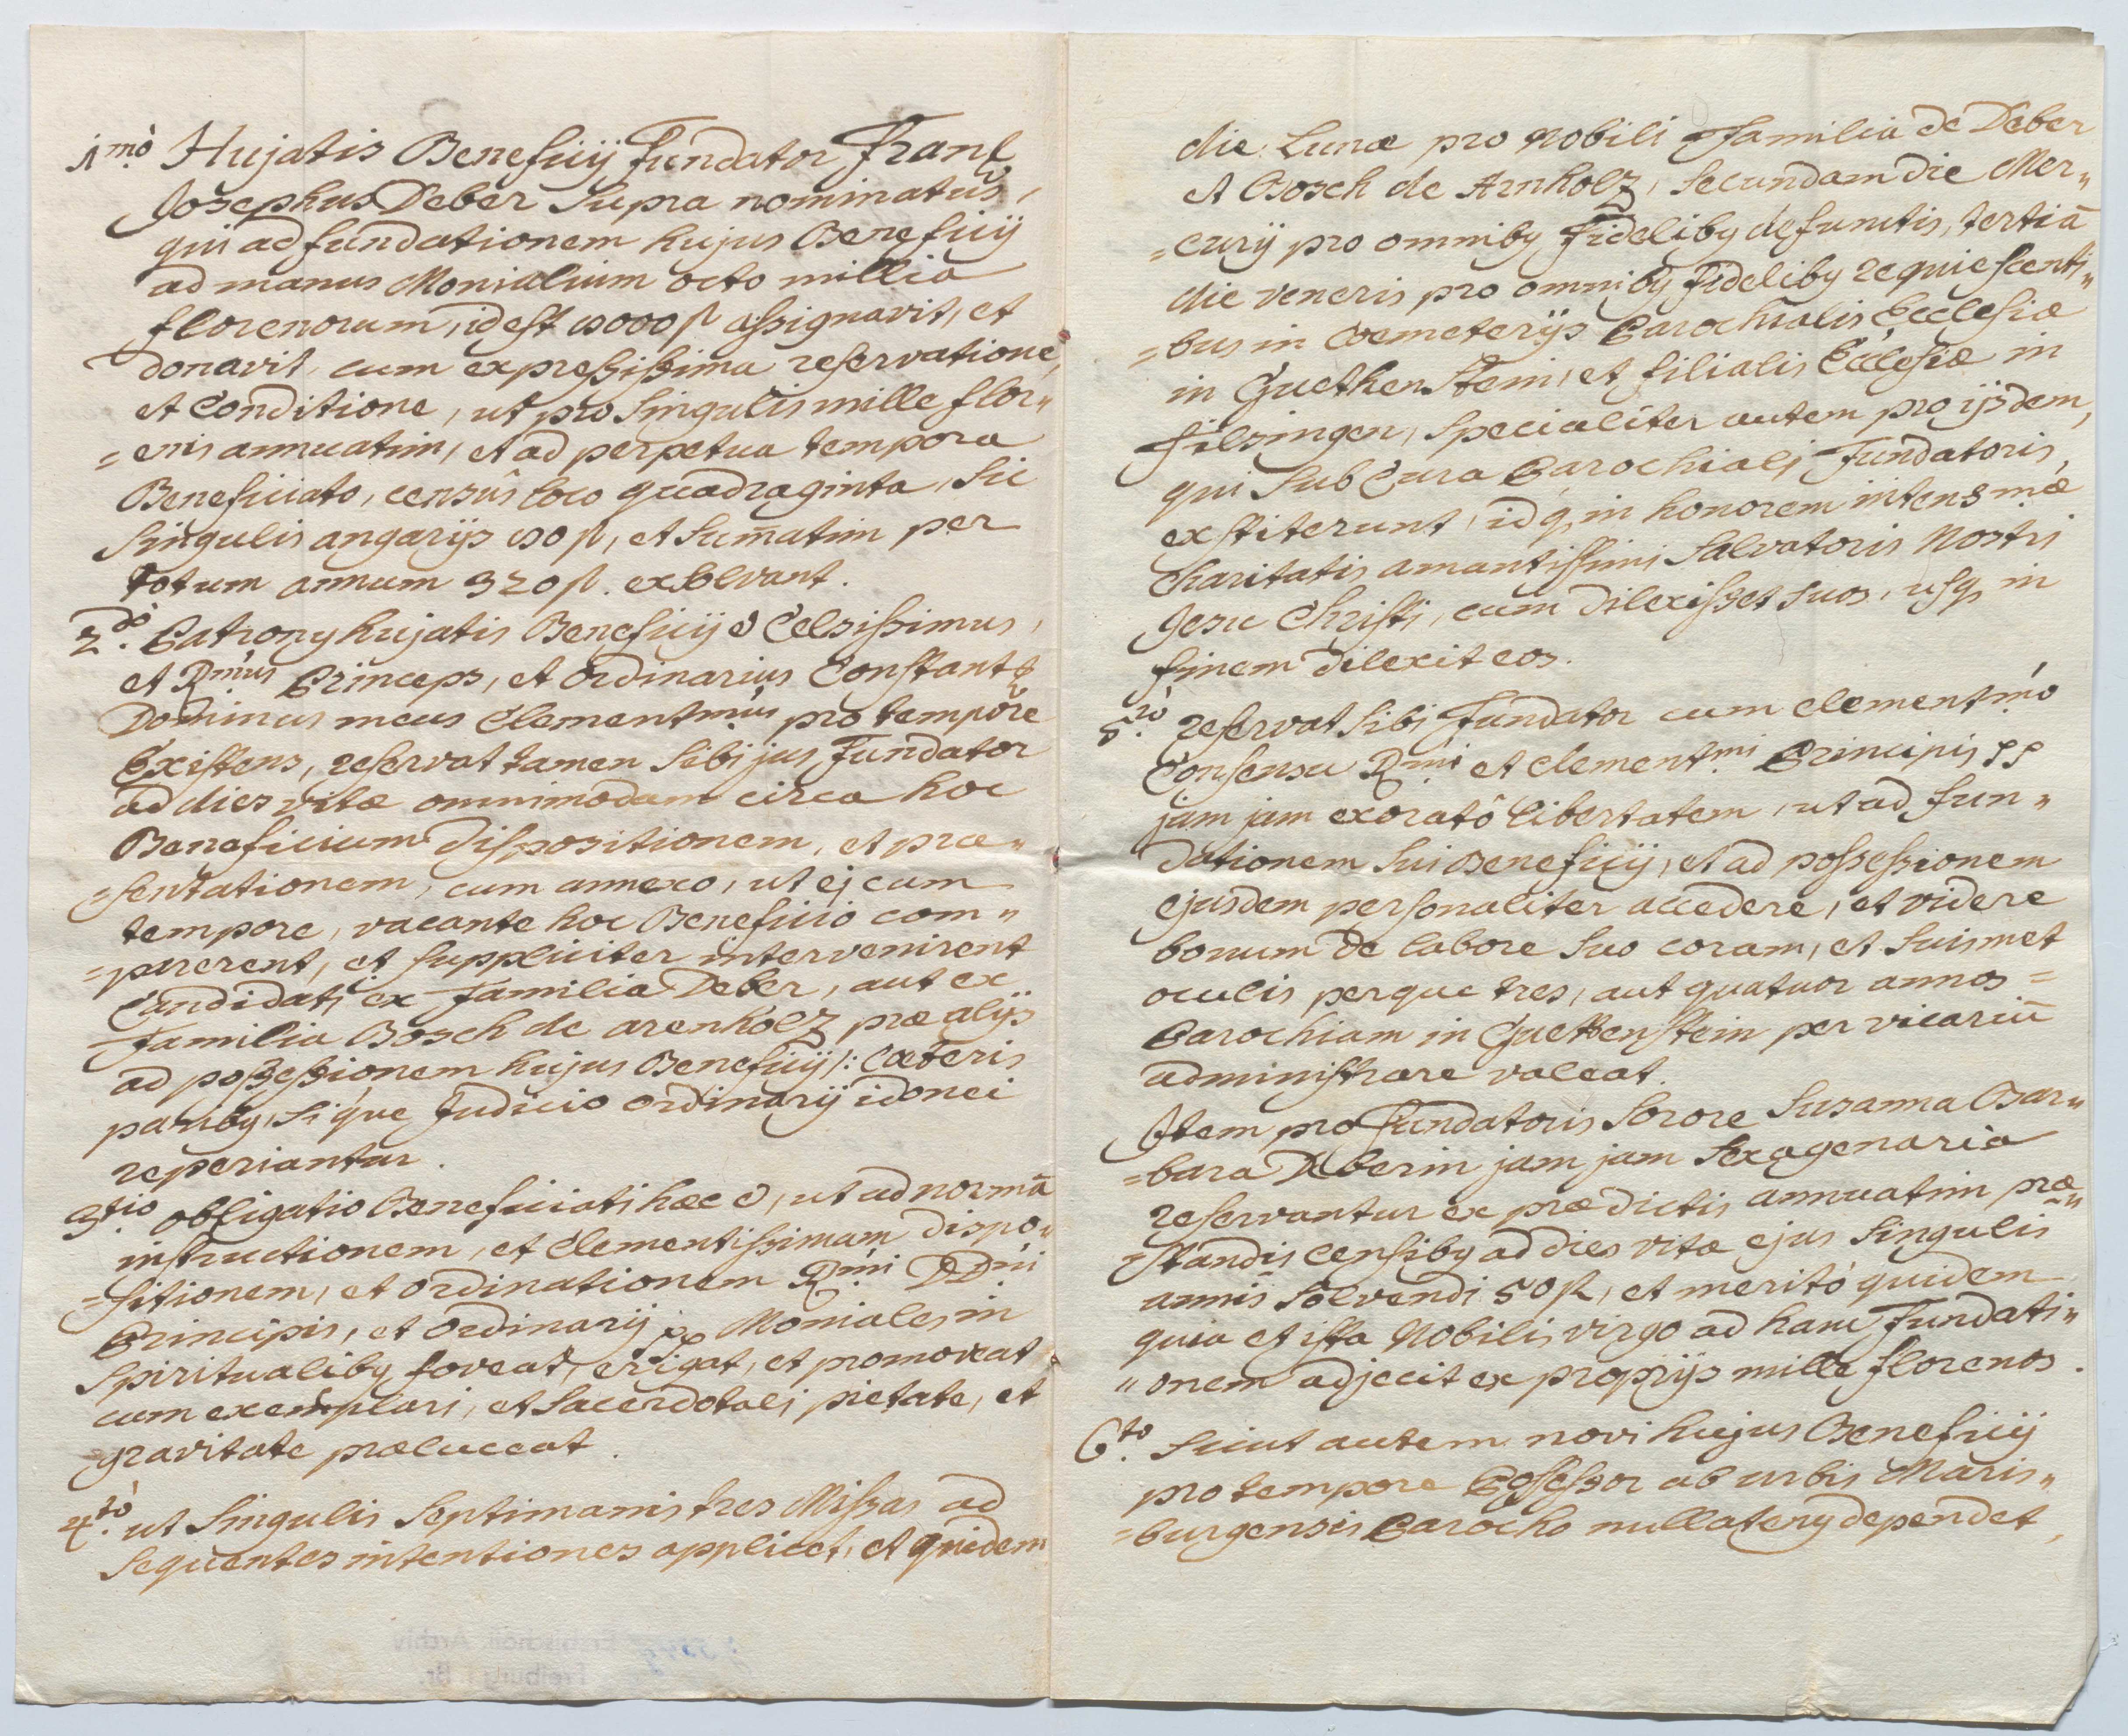 1mò Hujatis Beneficij Fundator Franc
Josephus Deber supra nominatus,
qui ad fundationem hujus Beneficij
ad manus Monialium octo millia
florenorum, id est 8000 fl assignavit, et
donavit, cum expressissima reservatione,
et Conditione, ut pro singulis mille flor„
=enis annuatim, et ad perpetua tempora
Beneficiato, censûs loco quadraginta, sic
singulis angarijs 80 fl, et summatim per
totum annum 320 fl. exsolvant.
2dò. Patrony hujatis Beneficij ē Celsissimus,
et Rmus Princeps, et Ordinarius Constant
Dominus meus Clementmus pro tempore
Existens, reservat tamen sibi jus Fundator
ad dies vitæ omnimodam circa hoc
Beneficium dispositionem, et præ„
=sentationem, cum annexo, ut ej cum
tempore, vacante hoc Beneficio com„
=parerent, et suppliciter intervenirent
Candidatj ex Familia Deber, aut ex
Familia Bosch de arenholz præ alijs
ad possessionem hujus Beneficij /: Cæteris
pariby, sique Judicio ordinarij idonei
reperiantur.
3tio. obligatio Beneficiati hæc ē, ut ad normā
instructionem, et Clementissimam dispo„
=sitionem, et ordinationem Rmi DDni
Principis, et Ordinarij pp Moniales in
spiritualiby foveat, erigat, et promoveat
cum exemplari, et sacerdotalj pietate, et
gravitate præluceat.
4tò. ut singulis septimanis tres Missas ad
sequentes intentiones applicet, et quidem
die Lunæ pro Nobili Familia de Deber
et Bosch de Arnholz, secundam die Mer„
=curij pro omniby fideliby defunctis, tertiā
die veneris pro omniby fideliby requiescenti„
=bus in Coemeterijs Parochialis Ecclesiæ
in Guethenstein, et filialis Ecclesiæ in
filsingen, specialiter autem pro ijsdem,
qui sub Cura Parochialj Fundatoris
exstiterunt, idq, in honorem intensmæ
Charitatis amantissimi Salvatoris Nostri
Jesu Christi, cum dilexisset suos, usq, in
finem dilexit eos.
5tò. reservat sibi Fundator cum clementmo
Consensu Rmi et clementmi Principis pp
jam jam exoratô libertatem, ut ad fun„
dationem sui Beneficij, et ad possessionem
ejusdem personaliter accedere, et videre
bonum de labore suo coram, et suismet
oculis perque tres, aut quatuor annos =
Parochiam in Guethenstein per vicariū
administrare valeat.
Item pro Fundatoris Sorore Susanna Bar„
=bara Deberin jam jam Sexagenaria
reservantur ex prædictis annuatim præ„
=standis censiby ad dies vitæ ejus singulis
annis solvendi 50 fl, et meritò quidem
quia et ista Nobilis virgo ad hanc Fundati„
„onem adjecit ex proprijs mille florenos.
6tò. sicut autem novi hujus Beneficij
pro tempore Possessor ab urbis Maris„
=burgensis Parocho nullateny dependet,